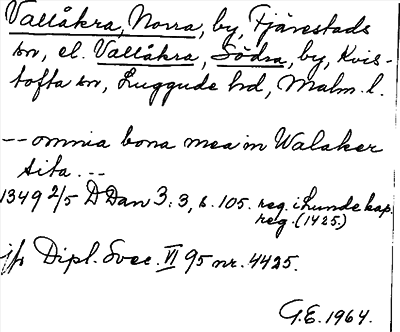 Vallåkra, Norra, by, Fjärestads
sn, el. Vallåkra, Södra, by, Kvis-
tofta sn, Luggude hd, Malm. l.
-- omnia bona mea in Walaker
sita. --
1349 2/5 DDan 3:3, s. 105. reg. i Lunde kap.
reg. (1425)
jfr Dipl. Svec. VI 95 nr. 4425.
G.E. 1964.